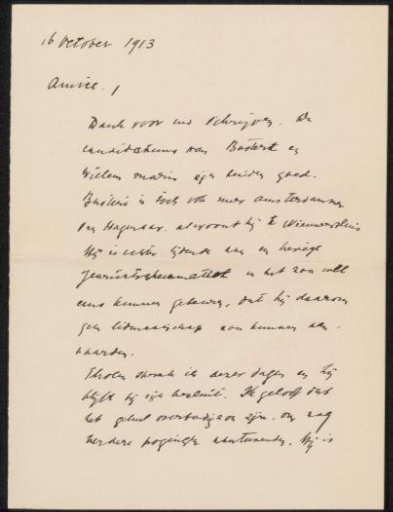 16 October 1913
Amice. /
Dank voor uw schrijven. De
candidaturen van Bastert en
Willem Maris zijn beiden goed.
Bastert is toch ook meer Amsterdammer
dan Hagenaar. al woont hij te Nieuwersluis
Hij is echter lijdende aan en hevige
gewrichtsrheumatiek en het zou wel
eens kunnen gebeuren, dat hij daarom
geen lidmaatschap zou kunnen aan-
vaarden.
Tholen sprak ik dezer dagen en hij
blijft bij zijn besluit. Ik geloof dat
het geheel overbodig zou zijn. om nog
verdere pogingen aantewenden. Hij is